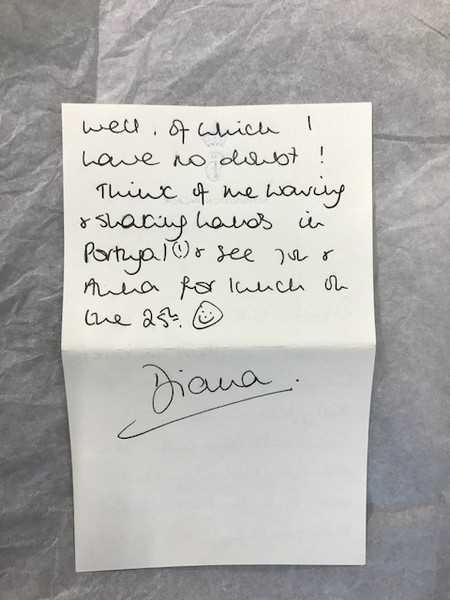 well, of which I
have no doubt!
Think of me waving
& shaking hands in
Portugal(!) & see you &
Anna for lunch on
the 25th. ☺
Diana.